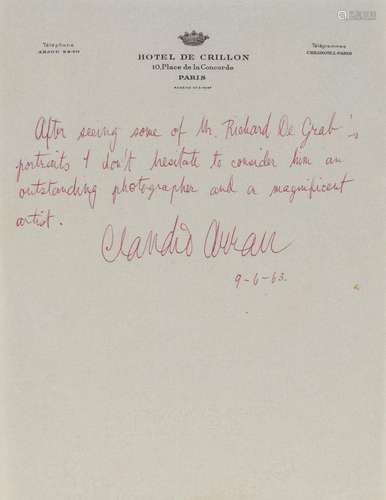 Téléphone
Télégrammes
CRILONOTEL-PARIS
HOTEL DE CRILLON
10, Place de la Concorde
PARIS
After seeing some of Mr. Richard De Grab's
portraits I don't hesitate to consider him an
outstanding photographer and a magnificent
artist.
Claudio Arrau
9-6-63.